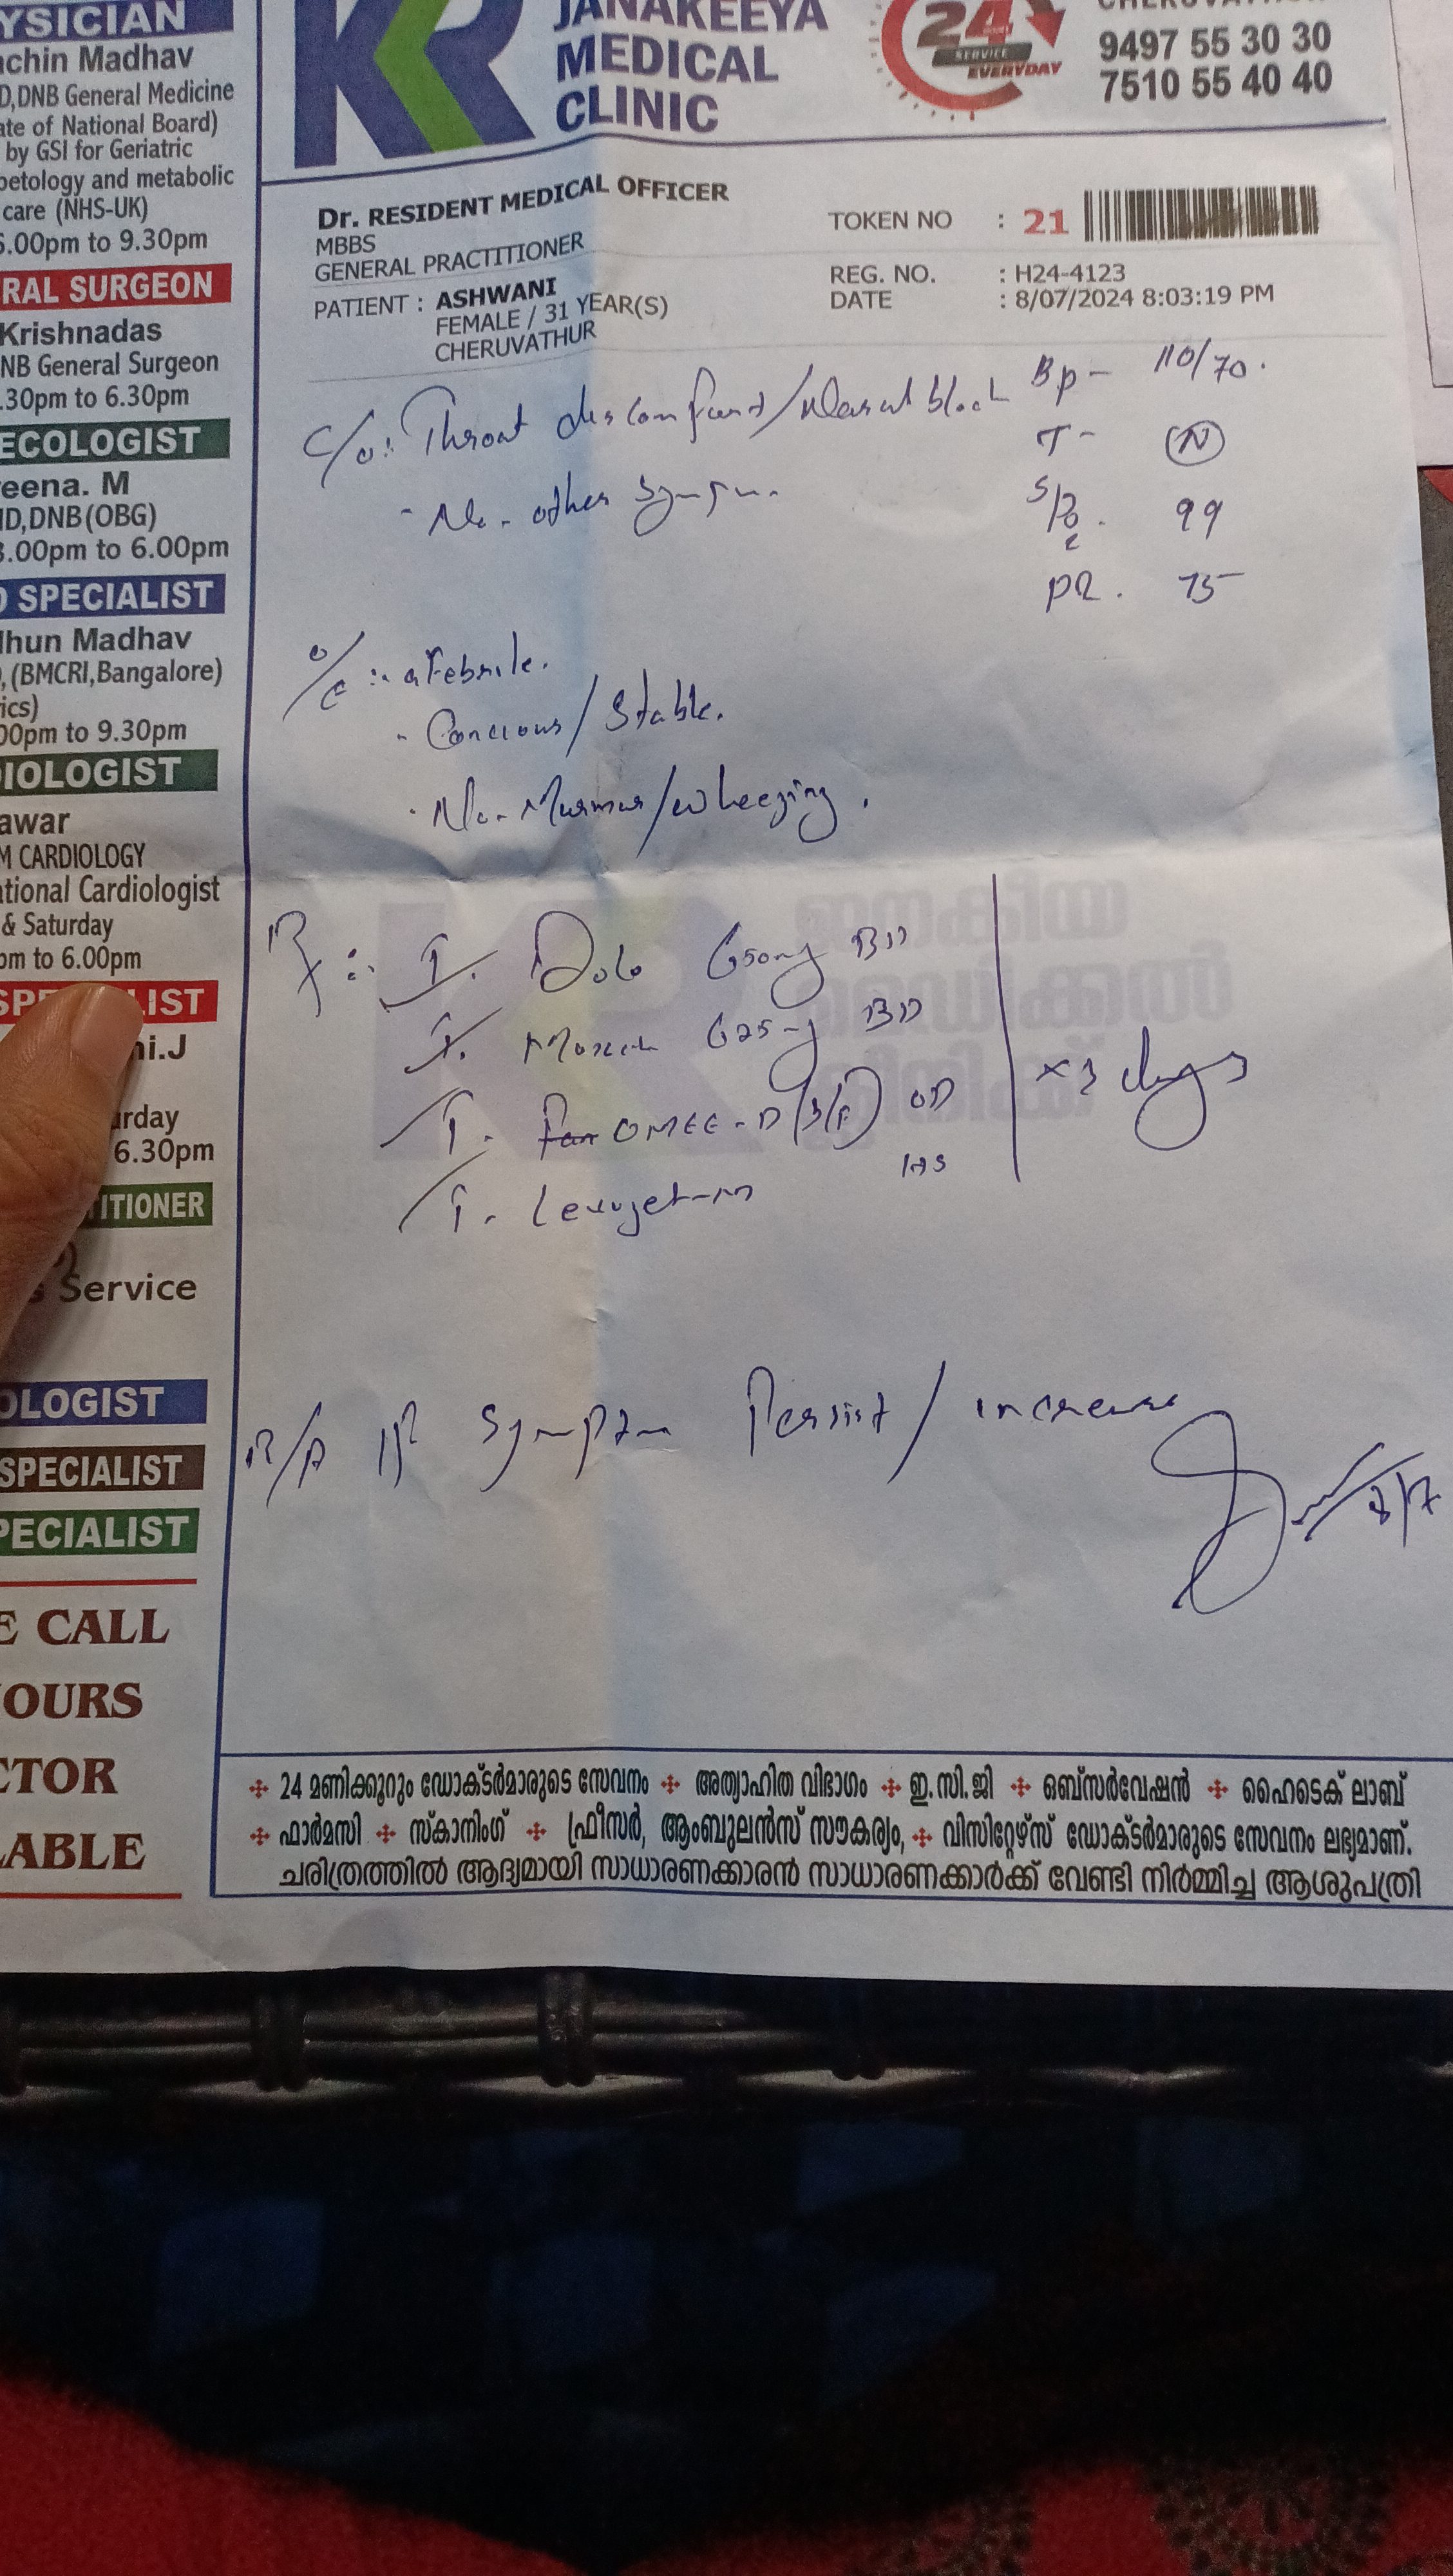 YSICIAN
achin Madhav
D,DNB General Medicine
ate of National Board)
by GSI for Geriatric
betology and metabolic
care (NHS-UK)
6.00pm to 9.30pm
RAL SURGEON
Krishnadas
NB General Surgeon
.30pm to 6.30pm
ECOLOGIST
eena. M
MD,DNB(OBG)
3.00pm to 6.00pm
SPECIALIST
dhun Madhav
, (BMCRI,Bangalore)
ics)
00pm to 9.30pm
IOLOGIST
awar
M CARDIOLOGY
ational Cardiologist
& Saturday
pm to 6.00pm
SPE LIST
ni.J
urday
6.30pm
TITIONER
s Service
OLOGIST
SPECIALIST
PECIALIST
E CALL
OURS
CTOR
LABLE
KR
JANAKEEYA
MEDICAL
CLINIC
24 HOURS
SERVICE
EVERYDAY
9497 55 30 30
7510 55 40 40
Dr. RESIDENT MEDICAL OFFICER
MBBS
GENERAL PRACTITIONER
PATIENT : ASHWANI
FEMALE / 31 YEAR(S)
CHERUVATHUR
TOKEN NO : 21
REG. NO. : H24-4123
DATE : 8/07/2024 8:03:19 PM
C/o:- Throat discomfort/Nasal block
- No. other
Bp - 110/70.
T - N
SPO2. 99
PR. 75
O/E :- aFebrile.
- Concious/Stable.
- No- Murmur/wheezing.
Rx :- T. Dolo 650mg BD
T. 625mg BD
T. Pan OMEE-D (B/F) OD
T. Levozet-m HS
x3 days
R/A If Symptom Persist/increase
8/7
24 മണിക്കൂറും ഡോക്ടർമാരുടെ സേവനം അത്യാഹിത വിഭാഗം ഇ.സി.ജി ഒബ്സർവേഷൻ ഹൈടെക് ലാബ്
ഫാർമസി സ്കാനിംഗ് ഫ്രീസർ, ആംബുലൻസ് സൗകര്യം, വിസിറ്റേഴ്സ് ഡോക്ടർമാരുടെ സേവനം ലഭ്യമാണ്.
ചരിത്രത്തിൽ ആദ്യമായി സാധാരണക്കാരൻ സാധാരണക്കാർക്ക് വേണ്ടി നിർമ്മിച്ച ആശുപത്രി